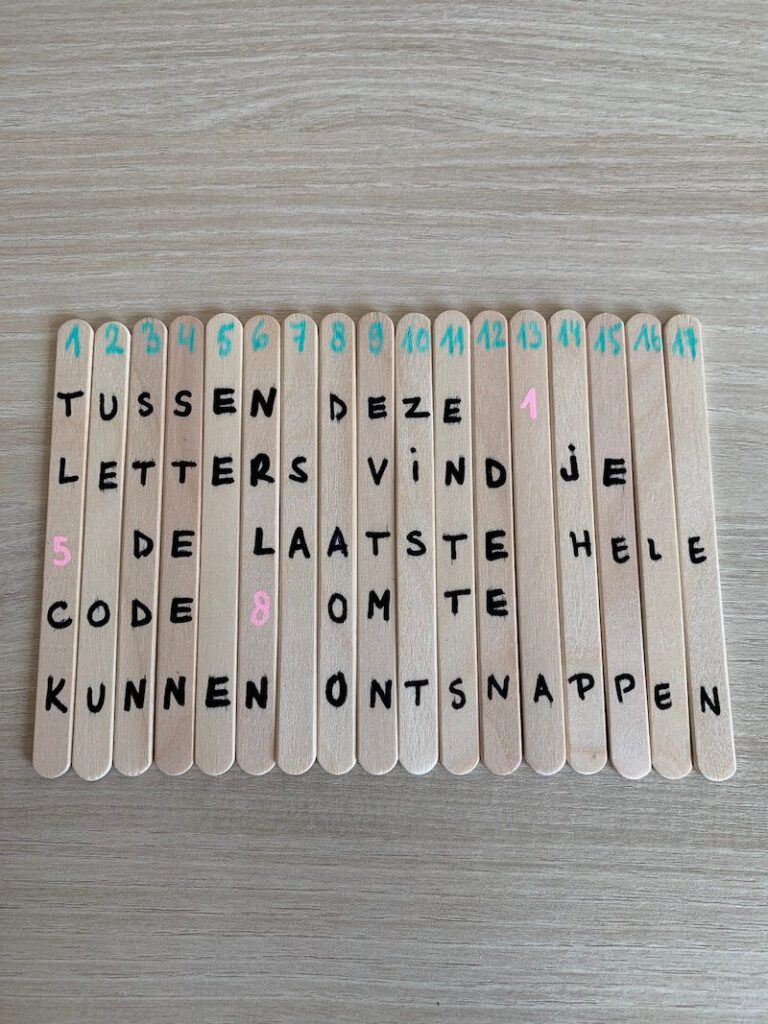 1 2 3 4 5 6 7 8 9 10 11 12 13 14 15 16 17
TUSSEN DEZE 1
LETTERS VIND JE
5 DE LAATSTE HELE
CODE 8 OM TE
KUNNEN ONTSNAPPEN